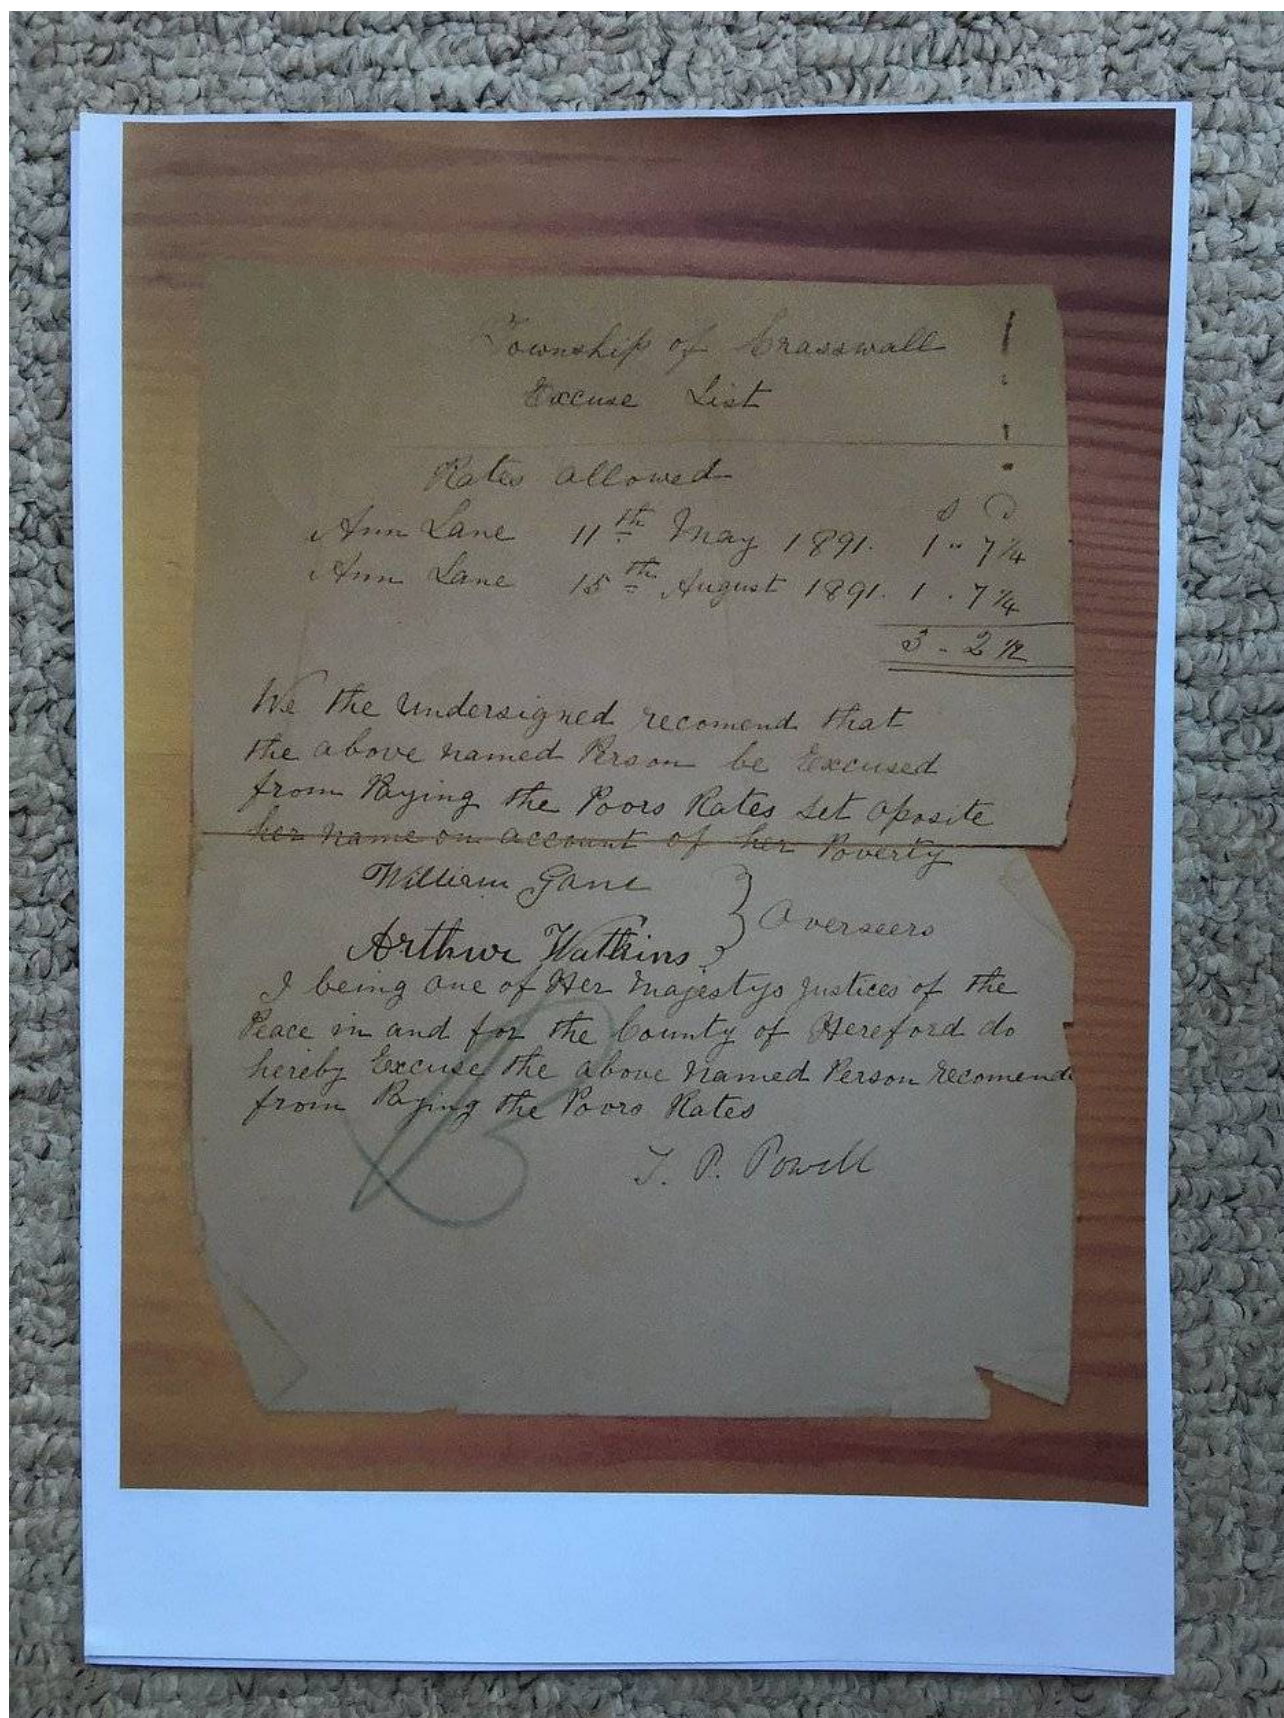 Township of Crasswall
Excuse List
Rates allowed
s D
Ann Lane 11th May 1891. 1 " 7 1/4
Ann Lane 15th August 1891. 1 . 7 1/4
3 - 2 1/2
We the undersigned recomend that
the above named Person be Excused
from Paying the Poors Rates set oposite
her name on account of her Poverty
William
Arthur Watkins } Overseers
I being one of Her Majestys Justices of the
Peace in and for the County of Hereford do
hereby Excuse the above named Person recomend
from Paying the Poors Rates
T. P. Powell